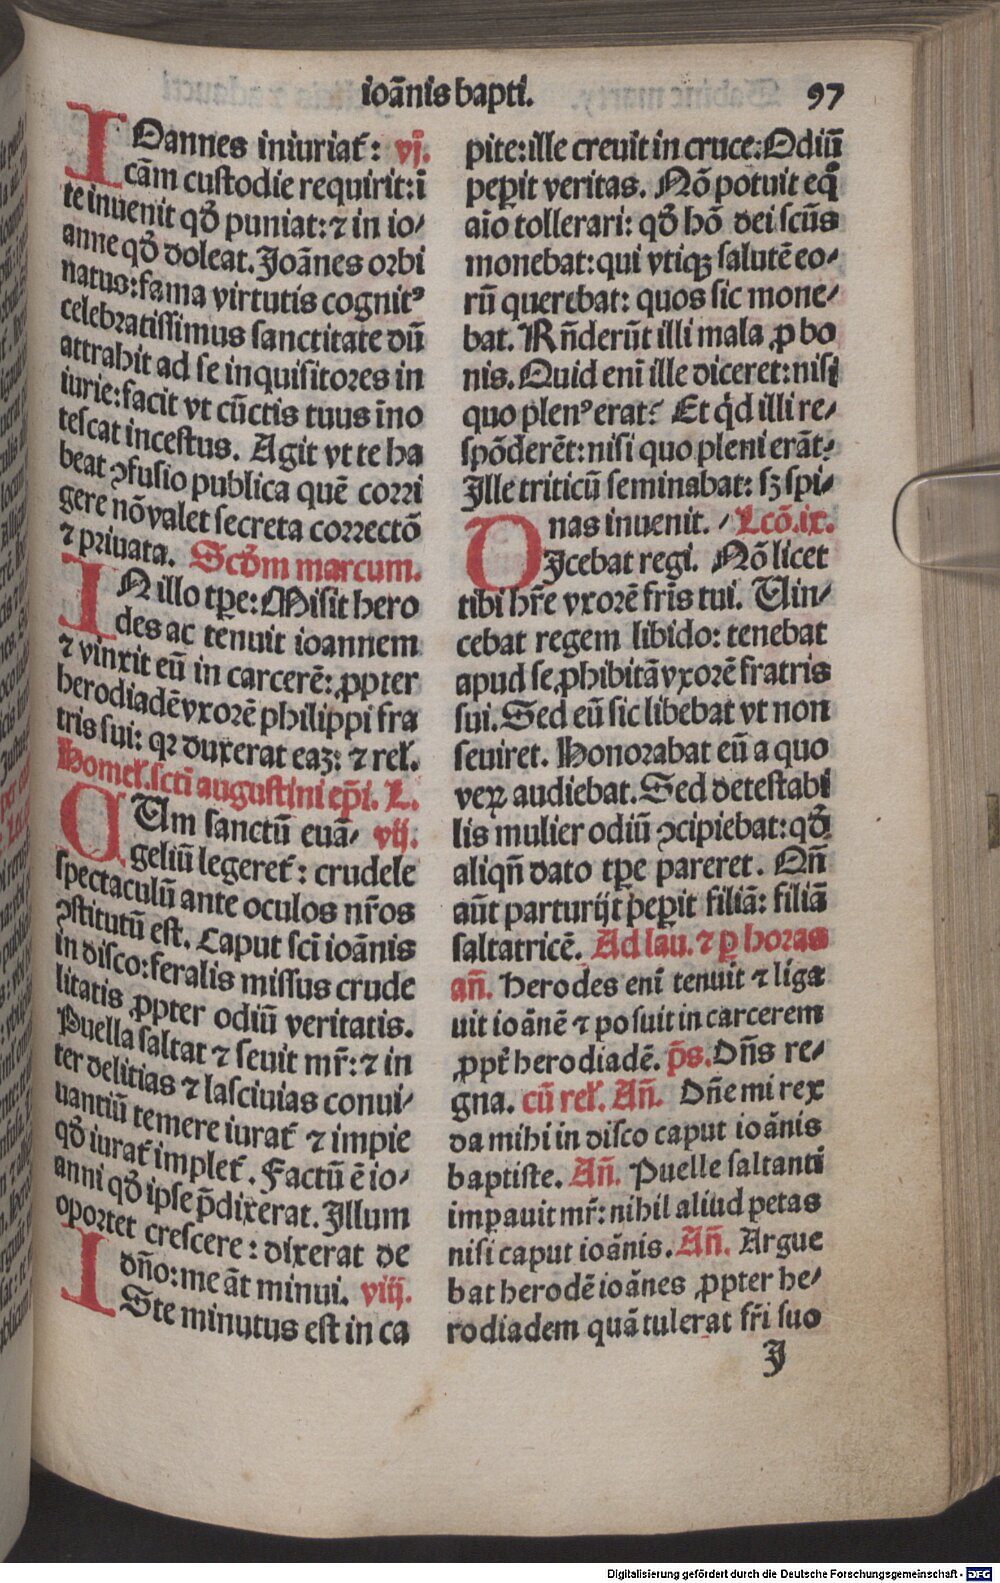 ioānis bapti.
97
IOannes iniuriaẗ: vj.
cām custodie requirit: ī
te inuenit qđ puniat: ⁊ in io/
anne qđ doleat. Joānes orbi
natus: fama virtutis cognitꝰ
celebratissimus sanctitate dū
attrahit ad se inquisitores in
iurie: facit vt cūctis tuus īno
tescat incestus. Agit vt te ha
beat ꝯfusio publica quē corri
gere nō valet secreta correctō
⁊ priuata. Scđm marcum.
IN illo tꝑe: Misit hero
des ac tenuit ioannem
⁊ vinxit eū in carcerē: ꝓpter
herodiadē vxorē philippi fra
tris sui: qꝛ duxerat eaꝫ: ⁊ reł.
Homeł. scti augustini ep̄i. L.
QUm sanctū euā/ vij.
geliū legereẗ: crudele
spectaculū ante oculos nr̄os
ꝯstitutū est. Caput sci ioānis
in disco: feralis missus crude
litatis ꝓpter odiū veritatis.
Puella saltat ⁊ seuit mr̄: ⁊ in
ter delitias ⁊ lasciuias conui/
uantiū temere iuraẗ ⁊ impie
qđ iuraẗ impleẗ. Factū ē io/
anni qđ ipse p̄dixerat. Illum
oportet crescere: dixerat de
dn̄o: me āt minui. viij.
ISte minutus est in ca
pite: ille creuit in cruce: Odiū
peꝑit veritas. Nō potuit eq̄
aīo tollerari: qđ hō dei scūs
monebat: qui vtiqꝫ salutē eo/
rū querebat: quos sic mone/
bat. Rn̄derūt illi mala ꝓ bo
nis. Quid enī ille diceret: nisi
quo plenꝰ erat? Et qd illi re/
spōderēt: nisi quo pleni erāt?
Ille triticū seminabat: sꝫ spi/
nas inuenit. / Lcō. ix.
DIcebat regi. Nō licet
tibi hr̄e vxorē fr̄is tui. Uin/
cebat regem libido: tenebat
apud se ꝓhibitā vxorē fratris
sui. Sed eū sic libebat vt non
seuiret. Honorabat eū a quo
veꝝ audiebat. Sed detestabi
lis mulier odiū ꝯcipiebat: qđ
aliqn̄ dato tꝑe pareret. Qn̄
aūt parturijt peꝑit filiā: filiā
saltatricē. Ad lau. ⁊ ꝑ horas
an̄. Herodes enī tenuit ⁊ liga
uit ioānē ⁊ posuit in carcerem
ꝓpẗ herodiadē. p̄s. Dn̄s re/
gna. cū reł. An̄. Dn̄e mi rex
da mihi in disco caput ioānis
baptiste. An̄. Puelle saltanti
imꝑauit mr̄: nihil aliud petas
nisi caput ioānis. An̄. Argue
bat herodē ioānes ꝓpter he/
rodiadem quā tulerat fr̄i suo
J
Digitalisierung gefördert durch die Deutsche Forschungsgemeinschaft - DFG